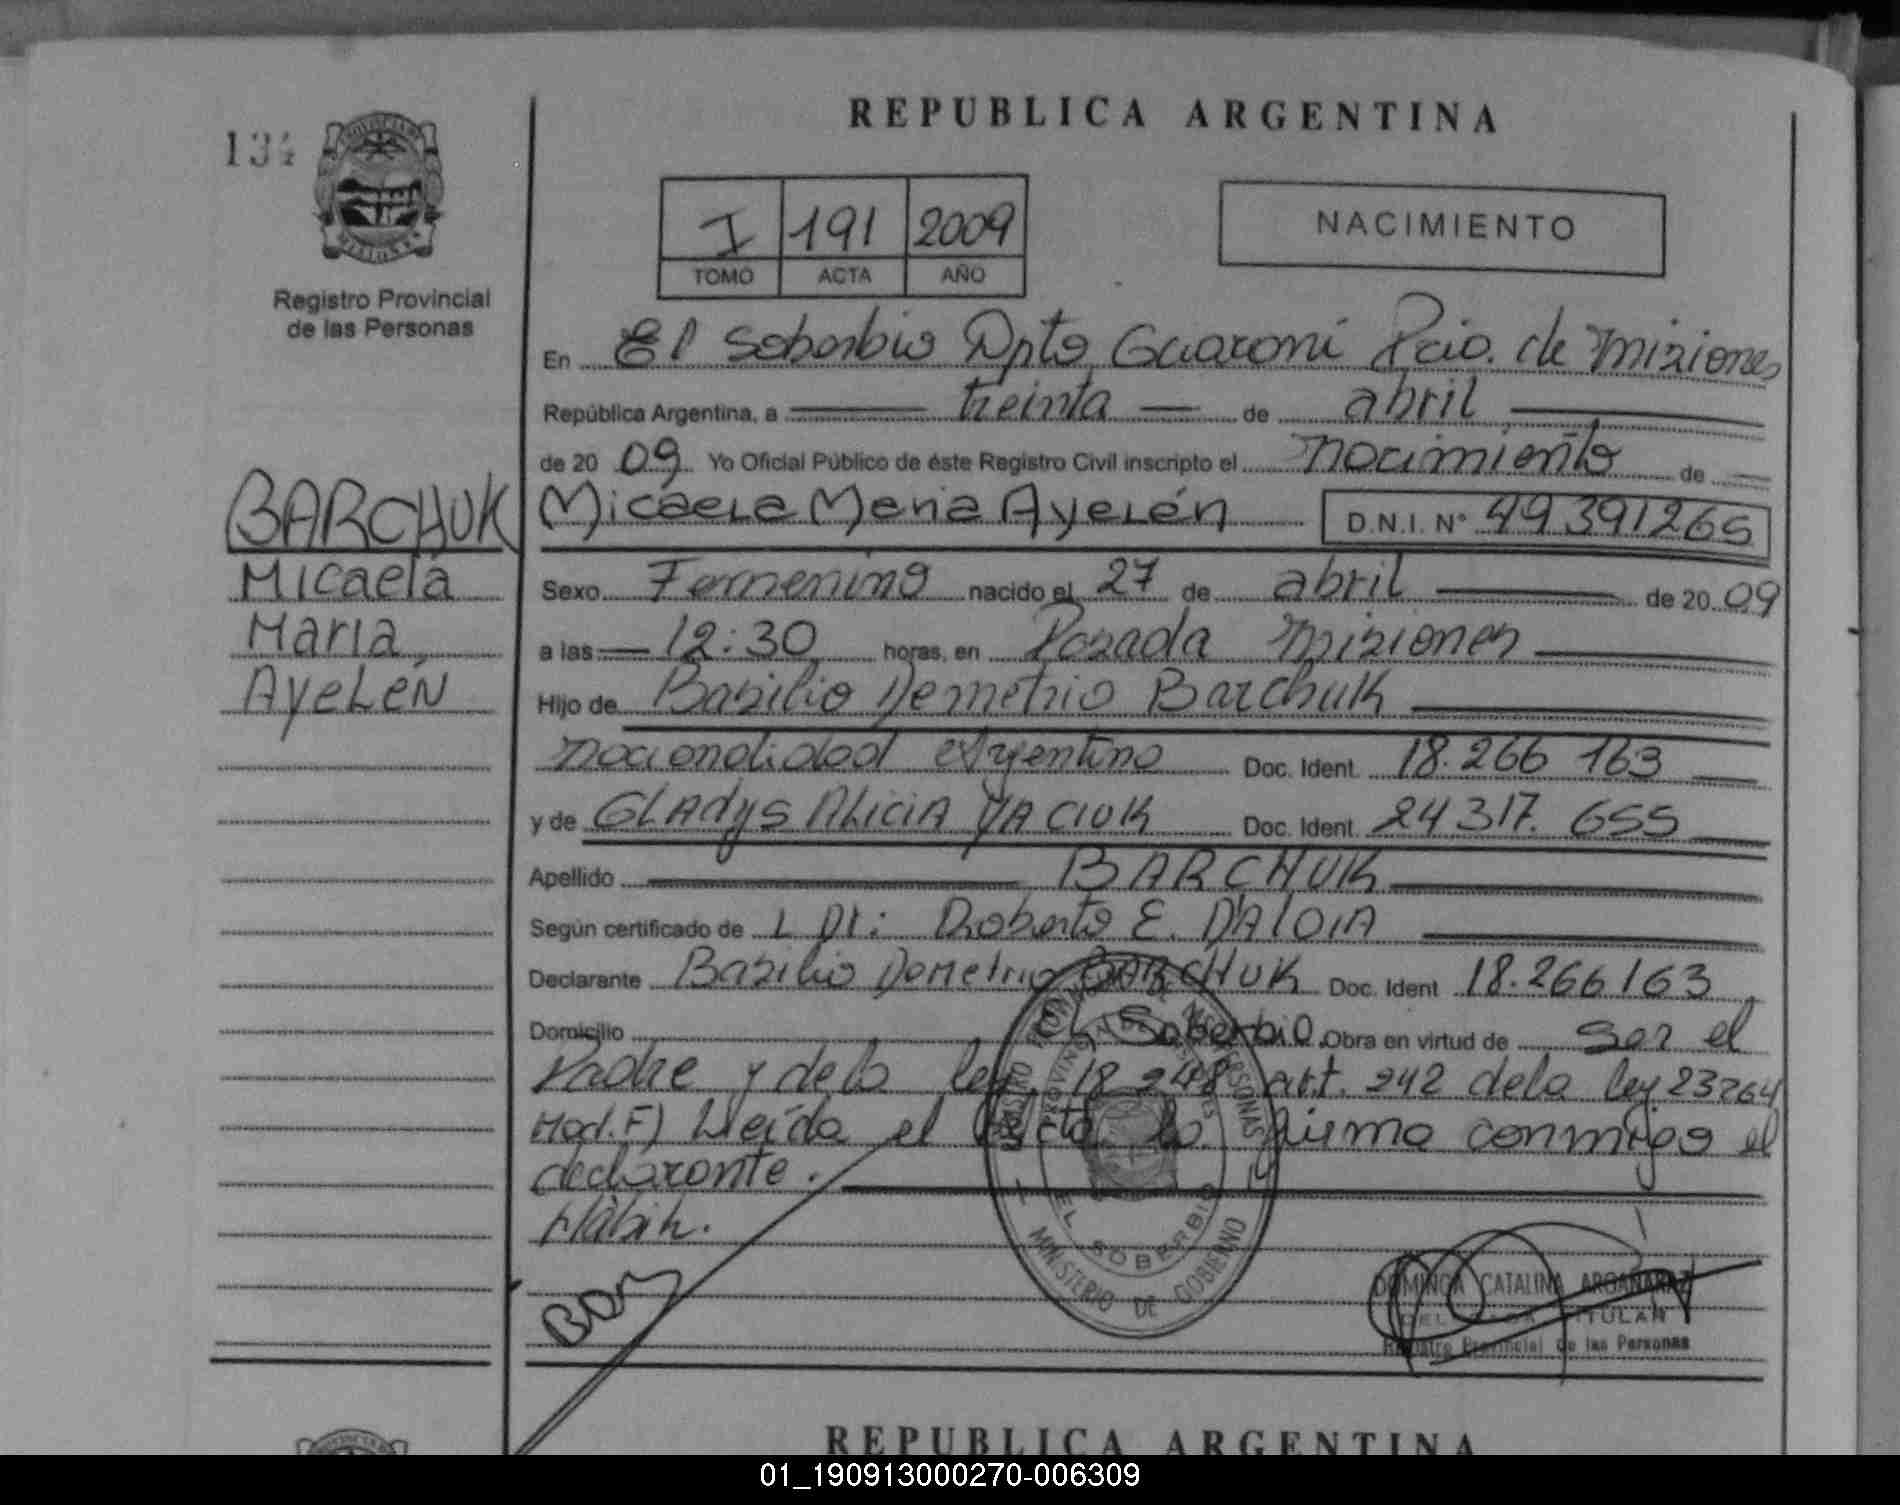 REPUBLICA ARGENTINA
134
I 191 2009
TOMO ACTA AÑO
NACIMIENTO
Registro Provincial
de las Personas
En El Soberbio Dpto Guaraní Pcia. de Misiones
República Argentina, a treinta de abril
de 20 09 Yo Oficial Público de éste Registro Civil inscripto el nacimiento de
BARCHUK
Micaela
Maria
AyeLéN
Micaela Maria Ayelén D.N.I. Nº 49391265
Sexo Femenino nacido el 27 de abril de 20 09
a las 12:30 horas, en Posada Misiones
Hijo de Basilio Demetrio Barchuk
nacionalidad Argentino Doc. Ident. 18.266 163
y de GLAdys ALiciA YACIUK Doc. Ident. 24 317. 655
Apellido BARCHUK
Según certificado de L Dr: Roberto E. D'ALOIA
Declarante Basilio Demetrio BARCHUK Doc. Ident 18.266163
Domicilio El Soberbio Obra en virtud de ser el
Padre y de la ley 18 248 art. 242 de la ley 23264
Mod. F) Leída el Acta la firma conmigo el
declarante.
REGISTRO PROVINCIAL DE LAS PERSONAS
EL SOBERBIO
MINISTERIO DE GOBIERNO
DOMINGA CATALINA ARGAÑARAZ
TITULAR
Registro Provincial de las Personas
REPUBLICA ARGENTINA
01_190913000270-006309